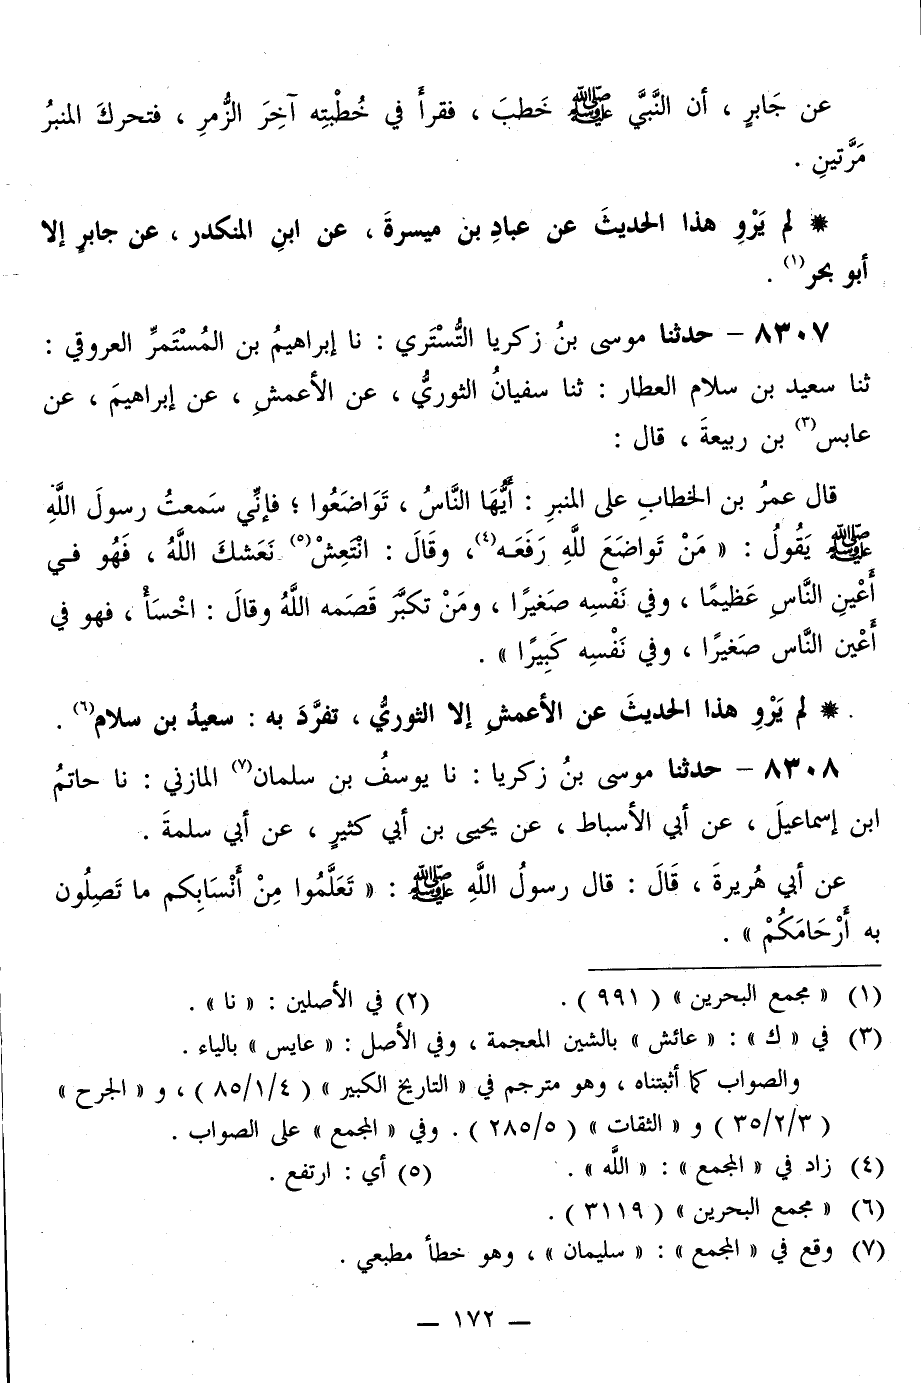 عن جَابرٍ ، أن النَّبيَّ ﷺ خَطبَ ، فقرأَ في خُطْبتِه آخِرَ الزُّمرِ ، فتحركَ المنبرُ
مَرَّتينِ .
* لم يَرْوِ هذا الحديثَ عن عبادِ بن ميسرةَ ، عن ابنِ المنكدر ، عن جابرٍ إلا
أبو بحر(١) .
٨٣٠٧ – حدثنا موسى بنُ زكريا التُّسْتَري : نا إبراهيمُ بن المُسْتَمرِّ العروقي :
ثنا سعيد بن سلام العطار : ثنا سفيانُ الثوريُّ ، عن الأعمشِ ، عن إبراهيمَ ، عن
عابس(٣) بن ربيعةَ ، قال :
قال عمرُ بن الخطابِ على المنبرِ : أَيُّهَا النَّاسُ ، تَوَاضَعُوا ؛ فإنِّي سَمعتُ رسولَ اللَّهِ
ﷺ يَقُولُ : « مَنْ تَواضَعَ للَّهِ رَفَعَـه(٤)، وقَالَ : انْتَعِشْ(٥) نَعَشكَ اللَّهُ ، فَهُو فـي
أَعْينِ النَّاسِ عَظيمًا ، وفي نَفْسِه صَغيرًا ، ومَنْ تكبَّرَ قَصَمه اللَّهُ وقالَ : اخْسَأْ ، فهو في
أَعْين النَّاس صَغيرًا ، وفي نَفْسِه كَبِيرًا » .
* لم يَرْوِ هذا الحديثَ عن الأعمشِ إلا الثوريُّ ، تفرَّدَ به : سعيدُ بن سلام(٦) .
٨٣٠٨ – حدثنا موسى بنُ زكريا : نا يوسفُ بن سلمان(٧) المازني : نا حاتمُ
ابن إسماعيلَ ، عن أبي الأسباط ، عن يحيى بن أبي كثيرٍ ، عن أبي سلمةَ .
عن أبي هُريرةَ ، قَالَ : قال رسولُ اللَّهِ ﷺ : « تَعَلَّمُوا مِنْ أَنْسَابِكم ما تَصِلُون
به أَرْحَامَكُمْ » .
(١) « مجمع البحرين » ( ٩٩١ ) . (٢) في الأصلين : « نا » .
(٣) في « ك » : « عائش » بالشين المعجمة ، وفي الأصل : « عايس » بالياء .
والصواب كما أثبتناه ، وهو مترجم في « التاريخ الكبير » ( ٨٥/١/٤ ) ، و « الجرح »
( ٣٥/٢/٣ ) و « الثقات » ( ٢٨٥/٥ ) . وفي « المجمع » على الصواب .
(٤) زاد في « المجمع » : « اللَّه » . (٥) أي : ارتفع .
(٦) « مجمع البحرين » ( ٣١١٩ ) .
(٧) وقع في « المجمع » : « سليمان » ، وهو خطأ مطبعي .
— ١٧٢ —